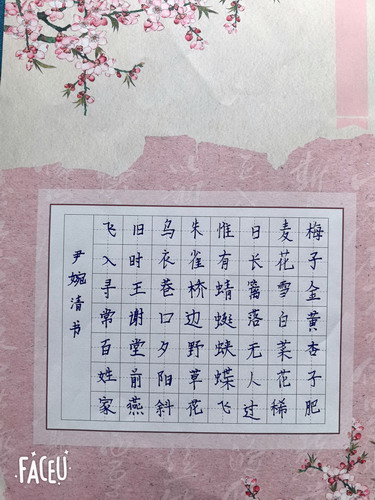 梅子金黄杏子肥
麦花雪白菜花稀
日长篱落无人过
惟有蜻蜓蛱蝶飞
朱雀桥边野草花
乌衣巷口夕阳斜
旧时王谢堂前燕
飞入寻常百姓家
尹婉清书
FACEU